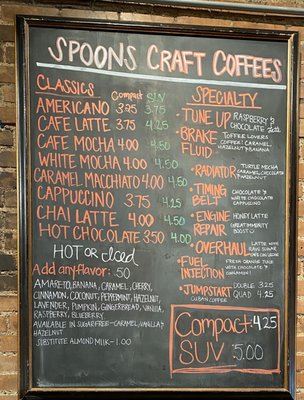 SPOONS CRAFT COFFEES
CLASSICS Compact SUV
AMERICANO 3.25 3.75
CAFE LATTE 3.75 4.25
CAFE MOCHA 4.00 4.50
WHITE MOCHA 4.00 4.50
CARAMEL MACCHIATO 4.00 4.50
CAPPUCCINO 3.75 4.25
CHAI LATTE 4.00 4.50
HOT CHOCOLATE 3.50 4.00
HOT or iced
Add any flavor: .50
AMARETO, BANANA, CARAMEL, CHERRY,
CINNAMON, COCONUT, PEPPERMINT, HAZELNUT,
LAVENDER, PUMPKIN, GINGERBREAD, VANILLA,
RASPBERRY, BLUEBERRY
AVAILABLE IN SUGARFREE-CARAMEL, VANILLA,
HAZELNUT
SUBSTITUTE ALMOND MILK - 1.00
SPECIALTY
TUNE UP RASPBERRY &
CHOCOLATE latte
BRAKE FLUID TOFFEE LOVERS
COFFEE! CARAMEL,
HAZELNUT & BANANA
RADIATOR TURTLE MOCHA
CARAMEL, CHOCOLATE
HAZELNUT
TIMING BELT CHOCOLATE &
WHITE CHOCOLATE
CAPPUCCINO
ENGINE REPAIR HONEY LATTE
(GREAT IMMUNITY
BOOST!)
OVERHAUL LATTE WITH
RAW SUGAR
FUEL INJECTION FRESH ORANGE
WITH CHOCOLATE &
CINNAMON!
JUMPSTART DOUBLE 3.25
CUBAN COFFEE QUAD 4.25
Compact: 4.25
SUV: 5.00